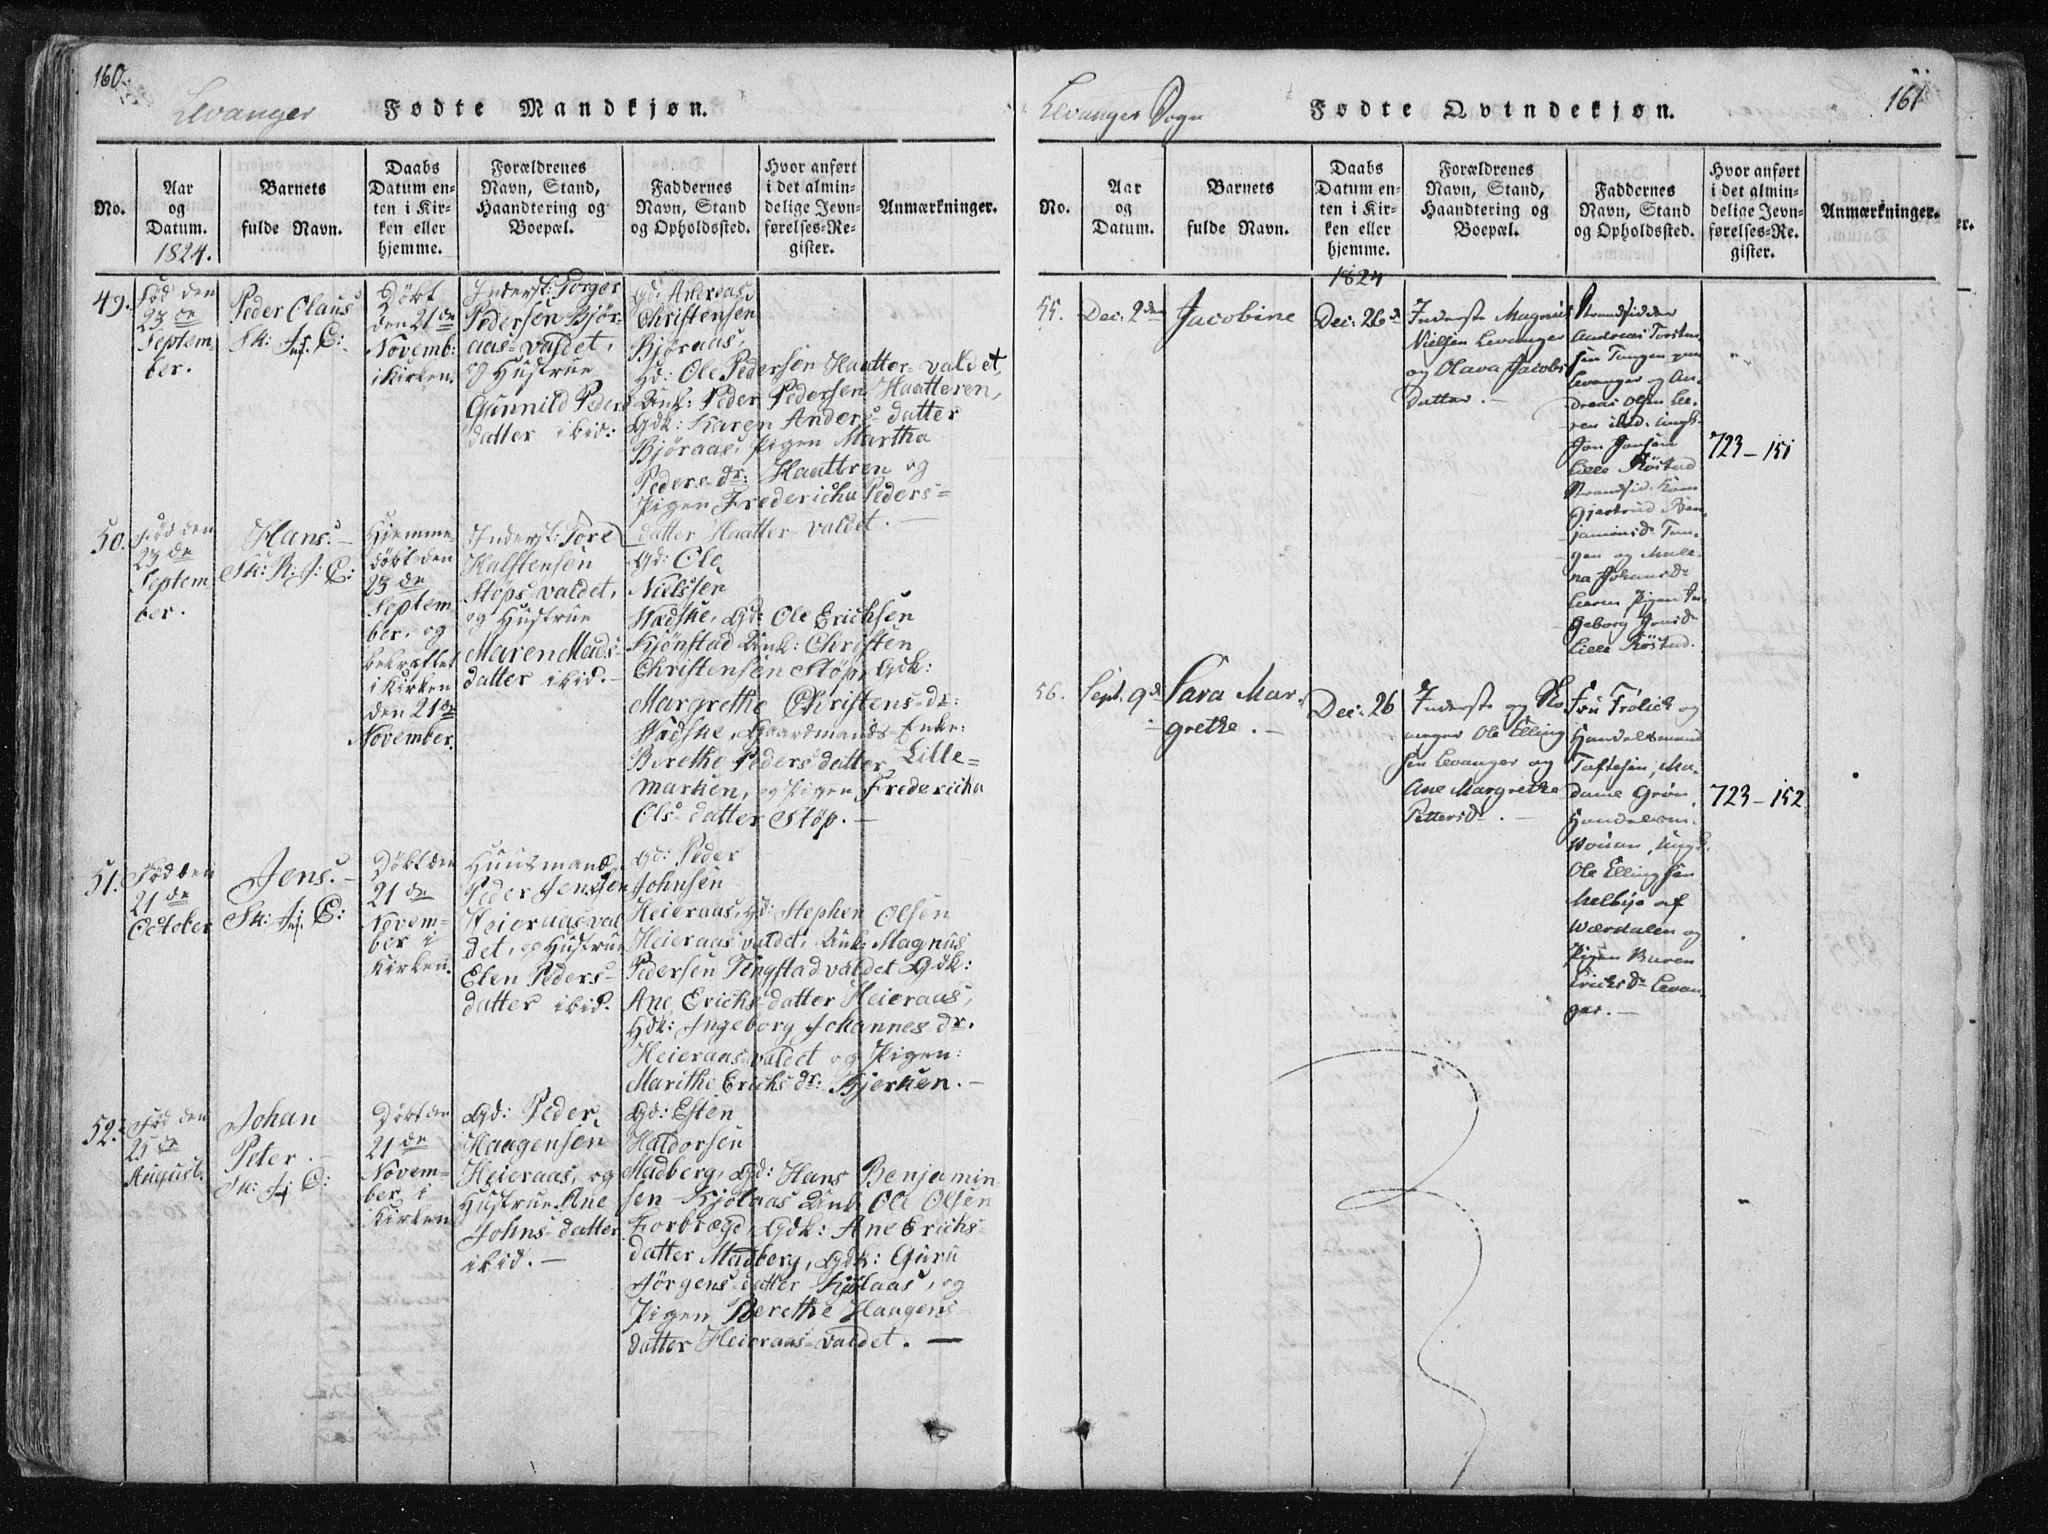 160.
Levanger
Fødte Mandkjøn.
No.
Aar
og
Datum.
1824.
Barnets
fulde Navn.
Daabs
Datum en-
ten i Kir-
ken eller
hjemme.
Forældrenes
Navn, Stand,
Haandtering og
Boepæl.
Faddernes
Navn, Stand
og Opholdssted.
Hvor anført
i det almin-
delige Jevn-
førelses-Re-
gister.
Anmærkninger.
49.
Fød den
23 de
Septem-
ber.
Peder Claus
Døbt
den 21 de
Novemb:
i Kirken.
Inderst: Torger
Pedersen Bjør-
aas-valdet,
og Hustrue
Gunnild Peders
datter ibid:
Gd: Andreas
Christensen
Bjøraas,
Gd: Ole Pedersen Haatter-valdet,
Unk: Peder Pedersen Haatteren,
Gdk: Karen Anders-datter
Bjøraas, Pigen Martha
Peders dr: Haattren og
Pigen Fredericha Peders-
datter Haatter valdet. —
50.
Fød den
23 de
Septem
ber.
Hans. —
Sk: R: J: C:
Hjemme-
døbt den
23 de
Septem
ber, og
bekræftet
i Kirken
den 21 de
November.
Inderst: Tore
Halstensen
Støps-valdet,
og Hustrue
Maren Mads-
datter ibid. —
Gd: Ole
Nielssen
Wædske, Gd: Ole Erichsen
Kjønstad Unk: Christen
Christensen Støp, Gdk:
Margrethe Christens-dr:
Wædske, Gaardmands-Enke:
Berethe Peders datter Lille-
marken, og Pigen Fredericha
Ols-datter Støp. —
51.
Fød den
21 de
October
Jens. —
Døbt den
21 de
Novem-
ber i
Kirken.
Huusmand
Peder Jenssen
Heieraas-val
det, og Hustrue
Elen Peders-
datter ibid.
Gd: Peder
Johnsen
Heieraas, Gd: Stephen Olsen
Heieraas valdet, Unk: Magnus
Pedersen Tingstad valdet Gdk:
Ane Erichs-datter Heieraas,
Gdk: Ingeborg Johannes dr.
Heieraas-valdet og Pigen:
Marithe Erichs dr: Bjerken. —
52.
Fød den
25 de
August.
Johan
Peter. —
Døbt den
21 de
Novem-
ber i
Kirken
Gd: Peder
Haagensen
Heieraas, og
Hustrue Ane
Johns-datter
ibid. —
Gd: Esten
Haldorsen
Madberg, Gd: Hans Benjamin-
sen Kjølaas Unk: Ole Olsen
Forbregd, Gdk: Ane Erichs-
datter Madberg, Gdk: Guru
Jørgens-datter Kjølaas, og
Pigen Berethe Haagens-
datter Heieraas-valdet. —
161
Levanger Sogn
Fødte Qvindekjøn.
No.
Aar
og
Datum.
Barnets
fulde Navn.
Daabs
Datum en-
ten i Kir-
ken eller
hjemme.
1824
Forældrenes
Navn, Stand,
Haandtering og
Boepæl.
Faddernes
Navn, Stand
og Opholdssted.
Hvor anført
i det almin-
delige Jevn-
førelses-Re-
gister.
Anmærkninger.
55.
Dec: 2den
Jacobine
Dec: 26 d
Inderste Magnus
Nielsen Levanger
og Olava Jacobs
datter. —
Strandsidder
Andreas Torsten
sen Tangen paa
Levanger og An-
dreas Olsen Lee-
ren ibid. Ungk.
Jon Jonsen
Lille Röstad
Strandsid. Kone
Gjertrud Ben-
jaminsd. Tan-
gen og Male-
na Johansd.
Leeren Pigen In-
geborg Jonsd.
Lille Röstad.
723 – 151
56.
Sept. 9 d
Sara Mar
grethe. —
Dec: 26
Inderste og
Ole Elling
sen Levanger og
Ane Margrethe
Pettersd. —
Fru Frølich og
Handelsmand
Toftesen, Ma-
dame Grøn,
Handelsm.
Ungk.
Ole Ellingsen
Melbye af
Wærdalen og
Pigen Karen
Erichsd. Levan-
ger. —
723 – 152